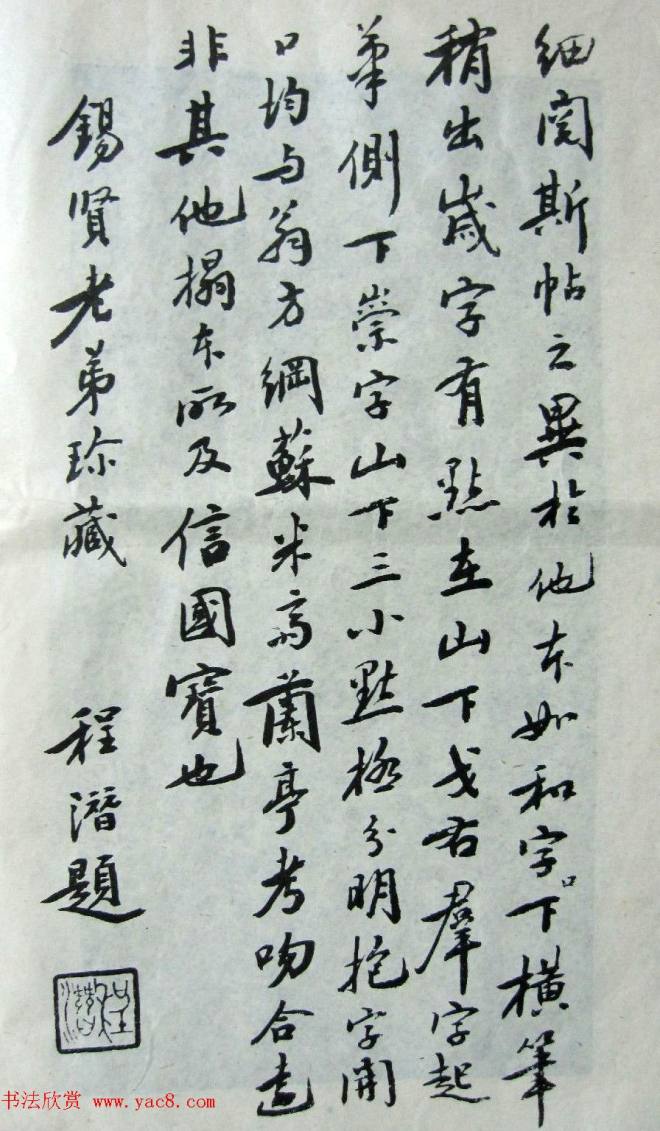 细阅斯帖之異於他本如和字口下橫筆
稍出崴字有點在山下戈右羣字起
筆側下崇字山下三小點極分明抱字開
口均与翁方綱蘇米斋蘭亭考吻合遠
非其他搨本所及信國寶也
錫賢老弟珍藏
程潛題
程潛
书法欣赏 www.yac8.com